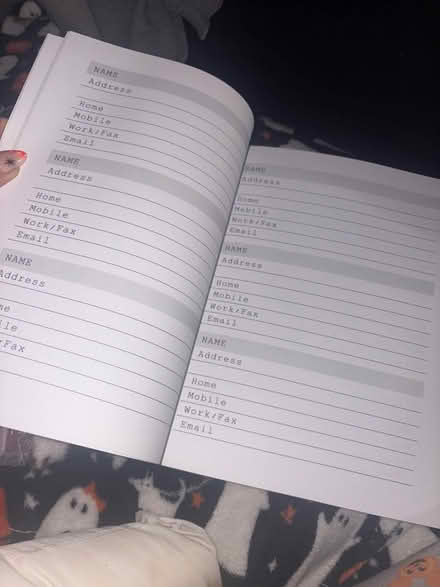 NAME
Address
Home
Mobile
Work/Fax
Email
NAME
Address
Home
Mobile
Work/Fax
Email
NAME
Address
me
ile
/Fax
NAME
Address
Home
Mobile
Work/Fax
Email
NAME
Address
Home
Mobile
Work/Fax
Email
NAME
Address
Home
Mobile
Work/Fax
Email